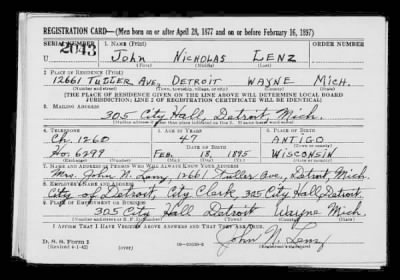 REGISTRATION CARD—(Men born on or after April 28, 1877 and on or before February 16, 1897)
SERIAL NUMBER 1. NAME (Print) ORDER NUMBER
U 2043 John Nicholas Lenz
(First) (Middle) (Last)
2. PLACE OF RESIDENCE (Print)
12661 Tuller Ave, Detroit Wayne Mich.
(Number and street) (Town, township, village, or city) (County) (State)
[THE PLACE OF RESIDENCE GIVEN ON THE LINE ABOVE WILL DETERMINE LOCAL BOARD
JURISDICTION; LINE 2 OF REGISTRATION CERTIFICATE WILL BE IDENTICAL]
3. MAILING ADDRESS
305 City Hall, Detroit, Mich.
4. TELEPHONE 5. AGE IN YEARS 6. PLACE OF BIRTH
Ch. 1260 47 Antigo
DATE OF BIRTH
Ho. 6299 Feb. 18, 1895 Wisconsin
7. NAME AND ADDRESS OF PERSON WHO WILL ALWAYS KNOW YOUR ADDRESS
Mrs. John N. Lenz, 12661 Tuller Ave, Detroit, Mich.
8. EMPLOYER'S NAME AND ADDRESS
City of Detroit, City Clerk, 305 City Hall, Detroit.
9. PLACE OF EMPLOYMENT OR BUSINESS
305 City Hall Detroit Wayne Mich.
I AFFIRM THAT I HAVE VERIFIED ABOVE ANSWERS AND THAT THEY ARE TRUE.
D. S. S. Form 1
(Revised 4-1-42) (over)
John N. Lenz